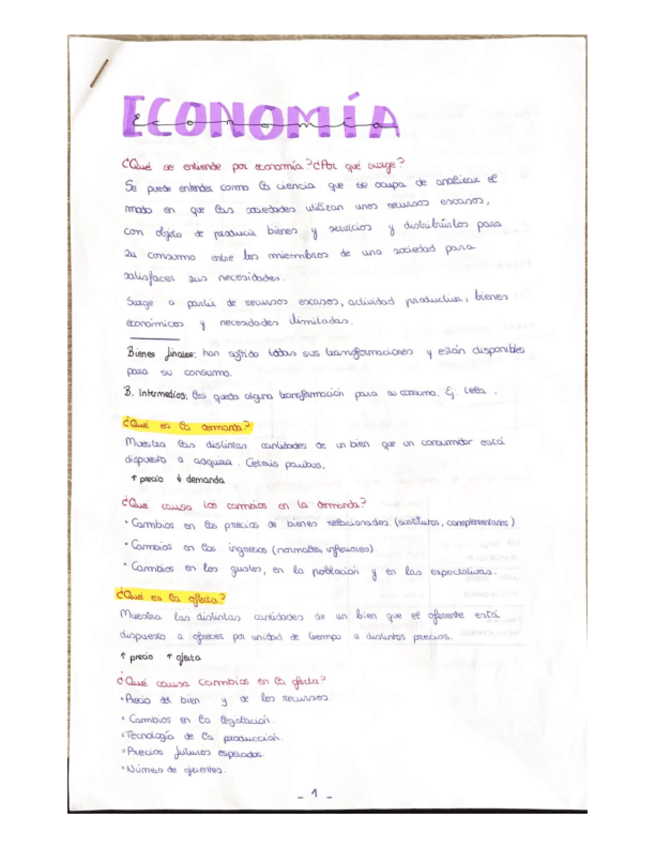 ECONOMÍA
Economía
¿Qué se entiende por economía? ¿Por qué surge?
Se puede entender como la ciencia que se ocupa de analizar el
modo en que las sociedades utilizan unos recursos escasos,
con objeto de producir bienes y servicios y distribuirlos para
su consumo entre los miembros de una sociedad para
satisfacer sus necesidades.
Surge a partir de recursos escasos, actividad productiva, bienes
económicos y necesidades ilimitadas.
Bienes finales: han sufrido todas sus transformaciones y están disponibles
para su consumo.
B. Intermedios: les queda alguna transformación para su consumo. Ej. Leña.
¿Qué es la demanda?
Muestra las distintas cantidades de un bien que un consumidor está
dispuesto a adquirir. Ceteris paribus.
↑ precio ↓ demanda
¿Qué causa los cambios en la demanda?
• Cambios en los precios de bienes relacionados (sustitutos, complementarios)
• Cambios en los ingresos (normales, inferiores)
• Cambios en los gustos, en la población y en las expectativas.
¿Qué es la oferta?
Muestra las distintas cantidades de un bien que el oferente está
dispuesto a ofrecer por unidad de tiempo a distintos precios.
↑ precio ↑ oferta
¿Qué causa cambios en la oferta?
• Precio del bien y de los recursos.
• Cambios en la legislación.
• Tecnología de la producción.
• Precios futuros esperados.
• Número de oferentes.
- 1 -